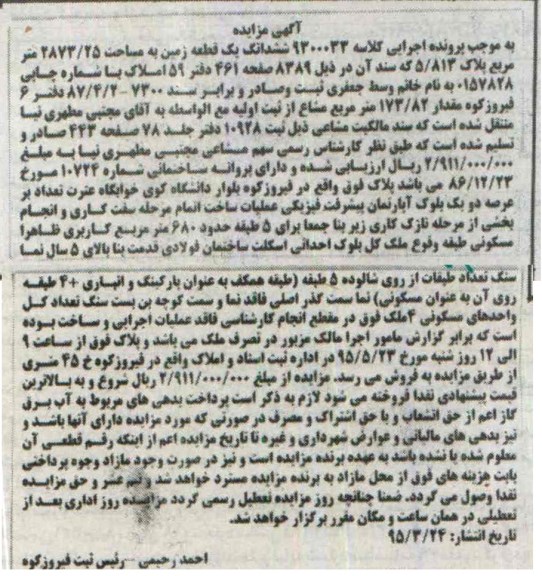 آگهی مزایده
به موجب پرونده اجرایی کلاسه ۹۳۰۰۰۳۳ ششدانگ یک قطعه زمین به مساحت ۲۸۷۳/۲۵ متر
مربع پلاک ۵/۸۱۳ که سند آن در ذیل ۸۳۸۹ صفحه ۴۶۱ دفتر ۵۹ املاک با شماره چاپی
۰۱۵۷۸۲۸ به نام خانم وسط جعفری ثبت وصادر و برابر سند ۷۳۰۰ - ۸۷/۴/۲ دفتر ۶
فیروزکوه مقدار ۱۷۳/۸۲ متر مربع مشاع از ثبت اولیه مع الواسطه به آقای مجتبی مطهری نیا
منتقل شده است که سند مالکیت مشاعی ذیل ثبت ۱۰۹۲۸ دفتر جلد ۷۸ صفحه ۴۴۳ صادر و
تسلیم شده است که طبق نظر کارشناس رسمی سهم مشاعی مجتبی مطهری نیا به مبلغ
۲/۹۱۱/۰۰۰/۰۰۰ ریال ارزیابی شده و دارای پروانه ساختمانی شماره ۱۰۷۲۴ مورخ
۸۶/۱۲/۲۳ می باشد پلاک فوق واقع در فیروزکوه بلوار دانشگاه کوی خوابگاه عترت تعداد بر
عرصه دو یک بلوک آپارتمان پیشرفت فیزیکی عملیات ساخت اتمام مرحله سفت کاری و انجام
بخشی از مرحله نازک کاری زیر بنا جمعا برای ۵ طبقه حدود ۶۸۰ متر مربع کاربری ظاهرا
مسکونی طبقه وقوع ملک کل بلوک احداثی اسکلت ساختمان فولادی قدمت بنا بالای ۵ سال نما
سنگ تعداد طبقات از روی شالوده ۵ طبقه (طبقه همکف به عنوان پارکینگ و انباری +۴ طبقه
روی آن به عنوان مسکونی) نما سمت گذر اصلی فاقد نما و سمت کوچه بن بست سنگ تعداد کل
واحدهای مسکونی ۴ ملک فوق در مقطع انجام کارشناسی فاقد عملیات اجرایی و ساخت بوده
است که برابر گزارش مامور اجرا مالک مزبور در تصرف ملک می باشد و پلاک فوق از ساعت ۹
الی ۱۲ روز شنبه مورخ ۹۵/۵/۲۳ در اداره ثبت اسناد و املاک واقع در فیروزکوه خ ۴۵ متری
از طریق مزایده به فروش می رسد. مزایده از مبلغ ۲/۹۱۱/۰۰۰/۰۰۰ ریال شروع و به بالاترین
قیمت پیشنهادی نقدا فروخته می شود لازم به ذکر است پرداخت بدهی های مربوط به آب برق
گاز اعم از حق انشعاب و یا حق اشتراک و مصرف در صورتی که مورد مزایده دارای آنها باشد و
نیز بدهی های مالیاتی و عوارض شهرداری و غیره تا تاریخ مزایده اعم از اینکه رقم قطعی آن
معلوم شده یا نشده باشد به عهده برنده مزایده است و نیز در صورت وجود مازاد وجوه پرداختی
بابت هزینه های فوق از محل مازاد به برنده مزایده مسترد خواهد شد و نیم عشر و حق مزایده
نقدا وصول می گردد. ضمنا چنانچه روز مزایده تعطیل رسمی گردد مزایده روز اداری بعد از
تعطیلی در همان ساعت و مکان مقرر برگزار خواهد شد.
تاریخ انتشار: ۹۵/۳/۲۴
احمد رحیمی - رئیس ثبت فیروزکوه